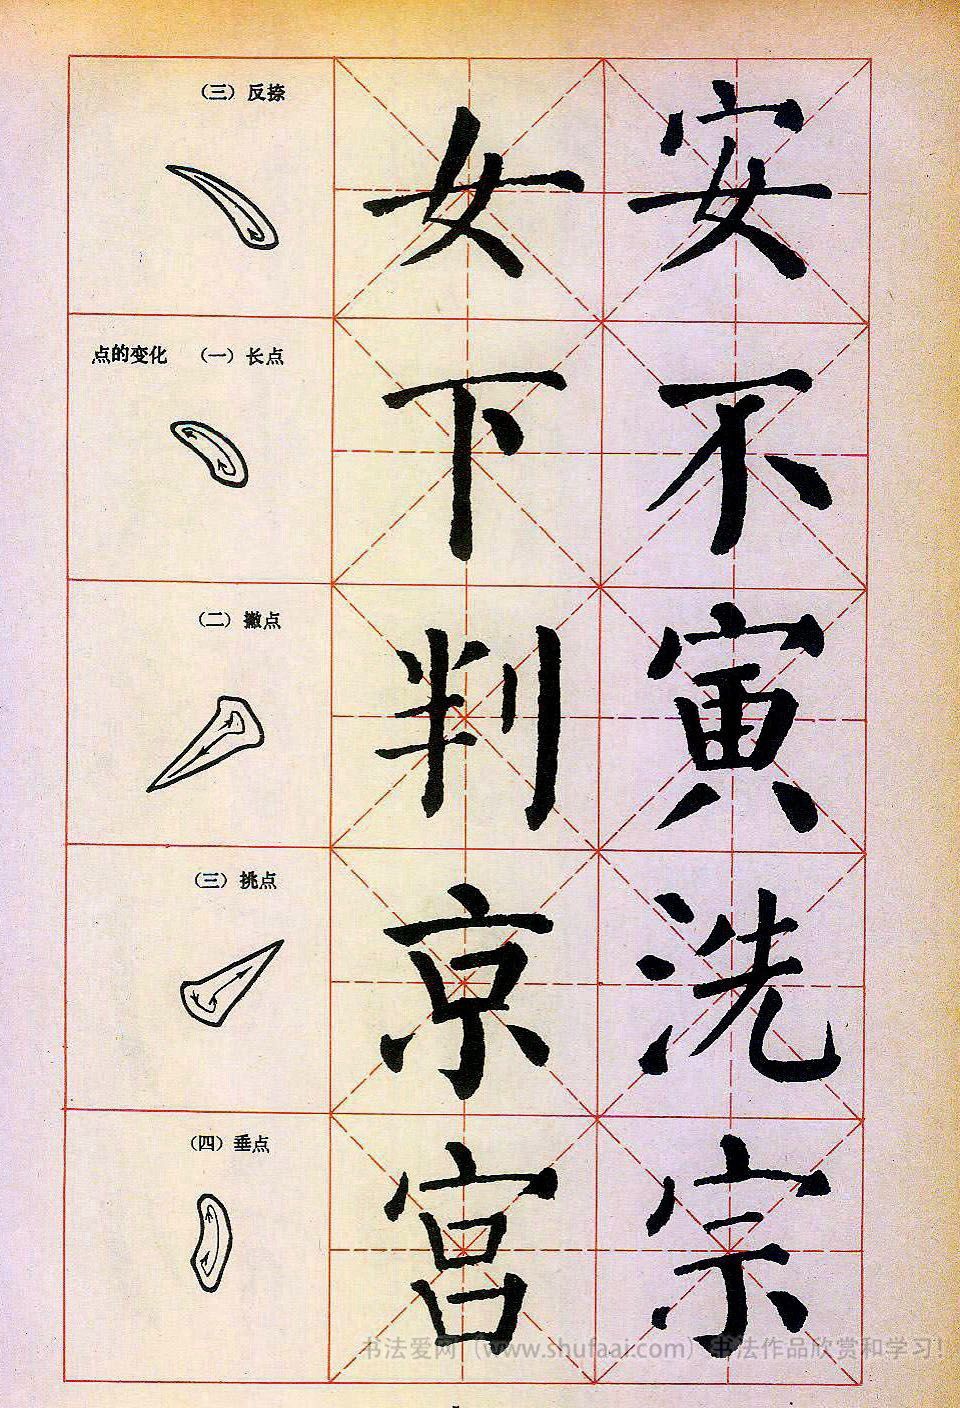 （三）反捺
女 安
点的变化 （一）长点
下 不
（二）撇点
判 寅
（三）挑点
京 洗
（四）垂点
宫 宗
书法爱网（www.shufaai.com）书法作品欣赏和学习！